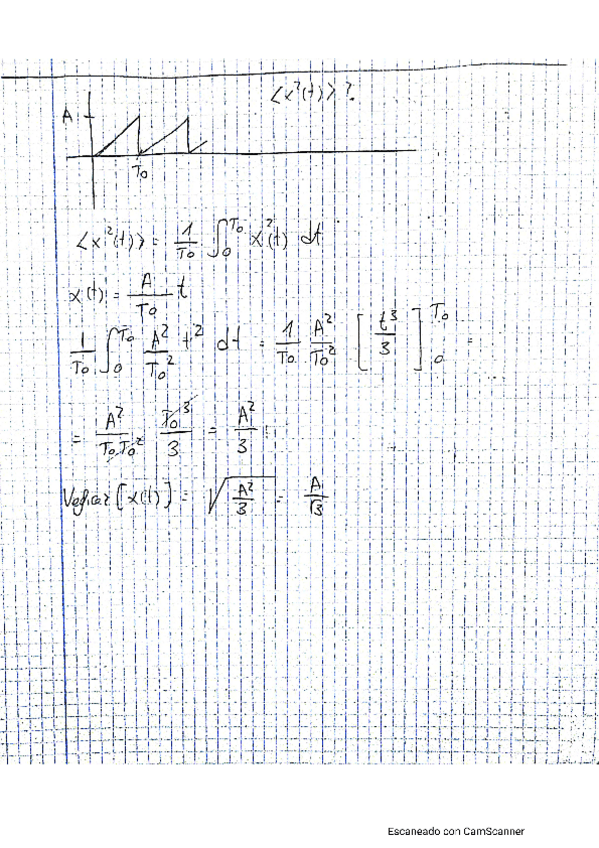 ⟨x²(t)⟩?
A
T₀
⟨x²(t)⟩ = 1/T₀ ∫₀^T₀ x²(t) dt
x(t) = A/T₀ t
1/T₀ ∫₀^T₀ A²/T₀² t² dt = 1/T₀ A²/T₀² [t³/3]₀^T₀ =
= A²/(T₀ T₀²) T₀³/3 = A²/3
[x(t)] = √(A²/3) = A/√3
Escaneado con CamScanner